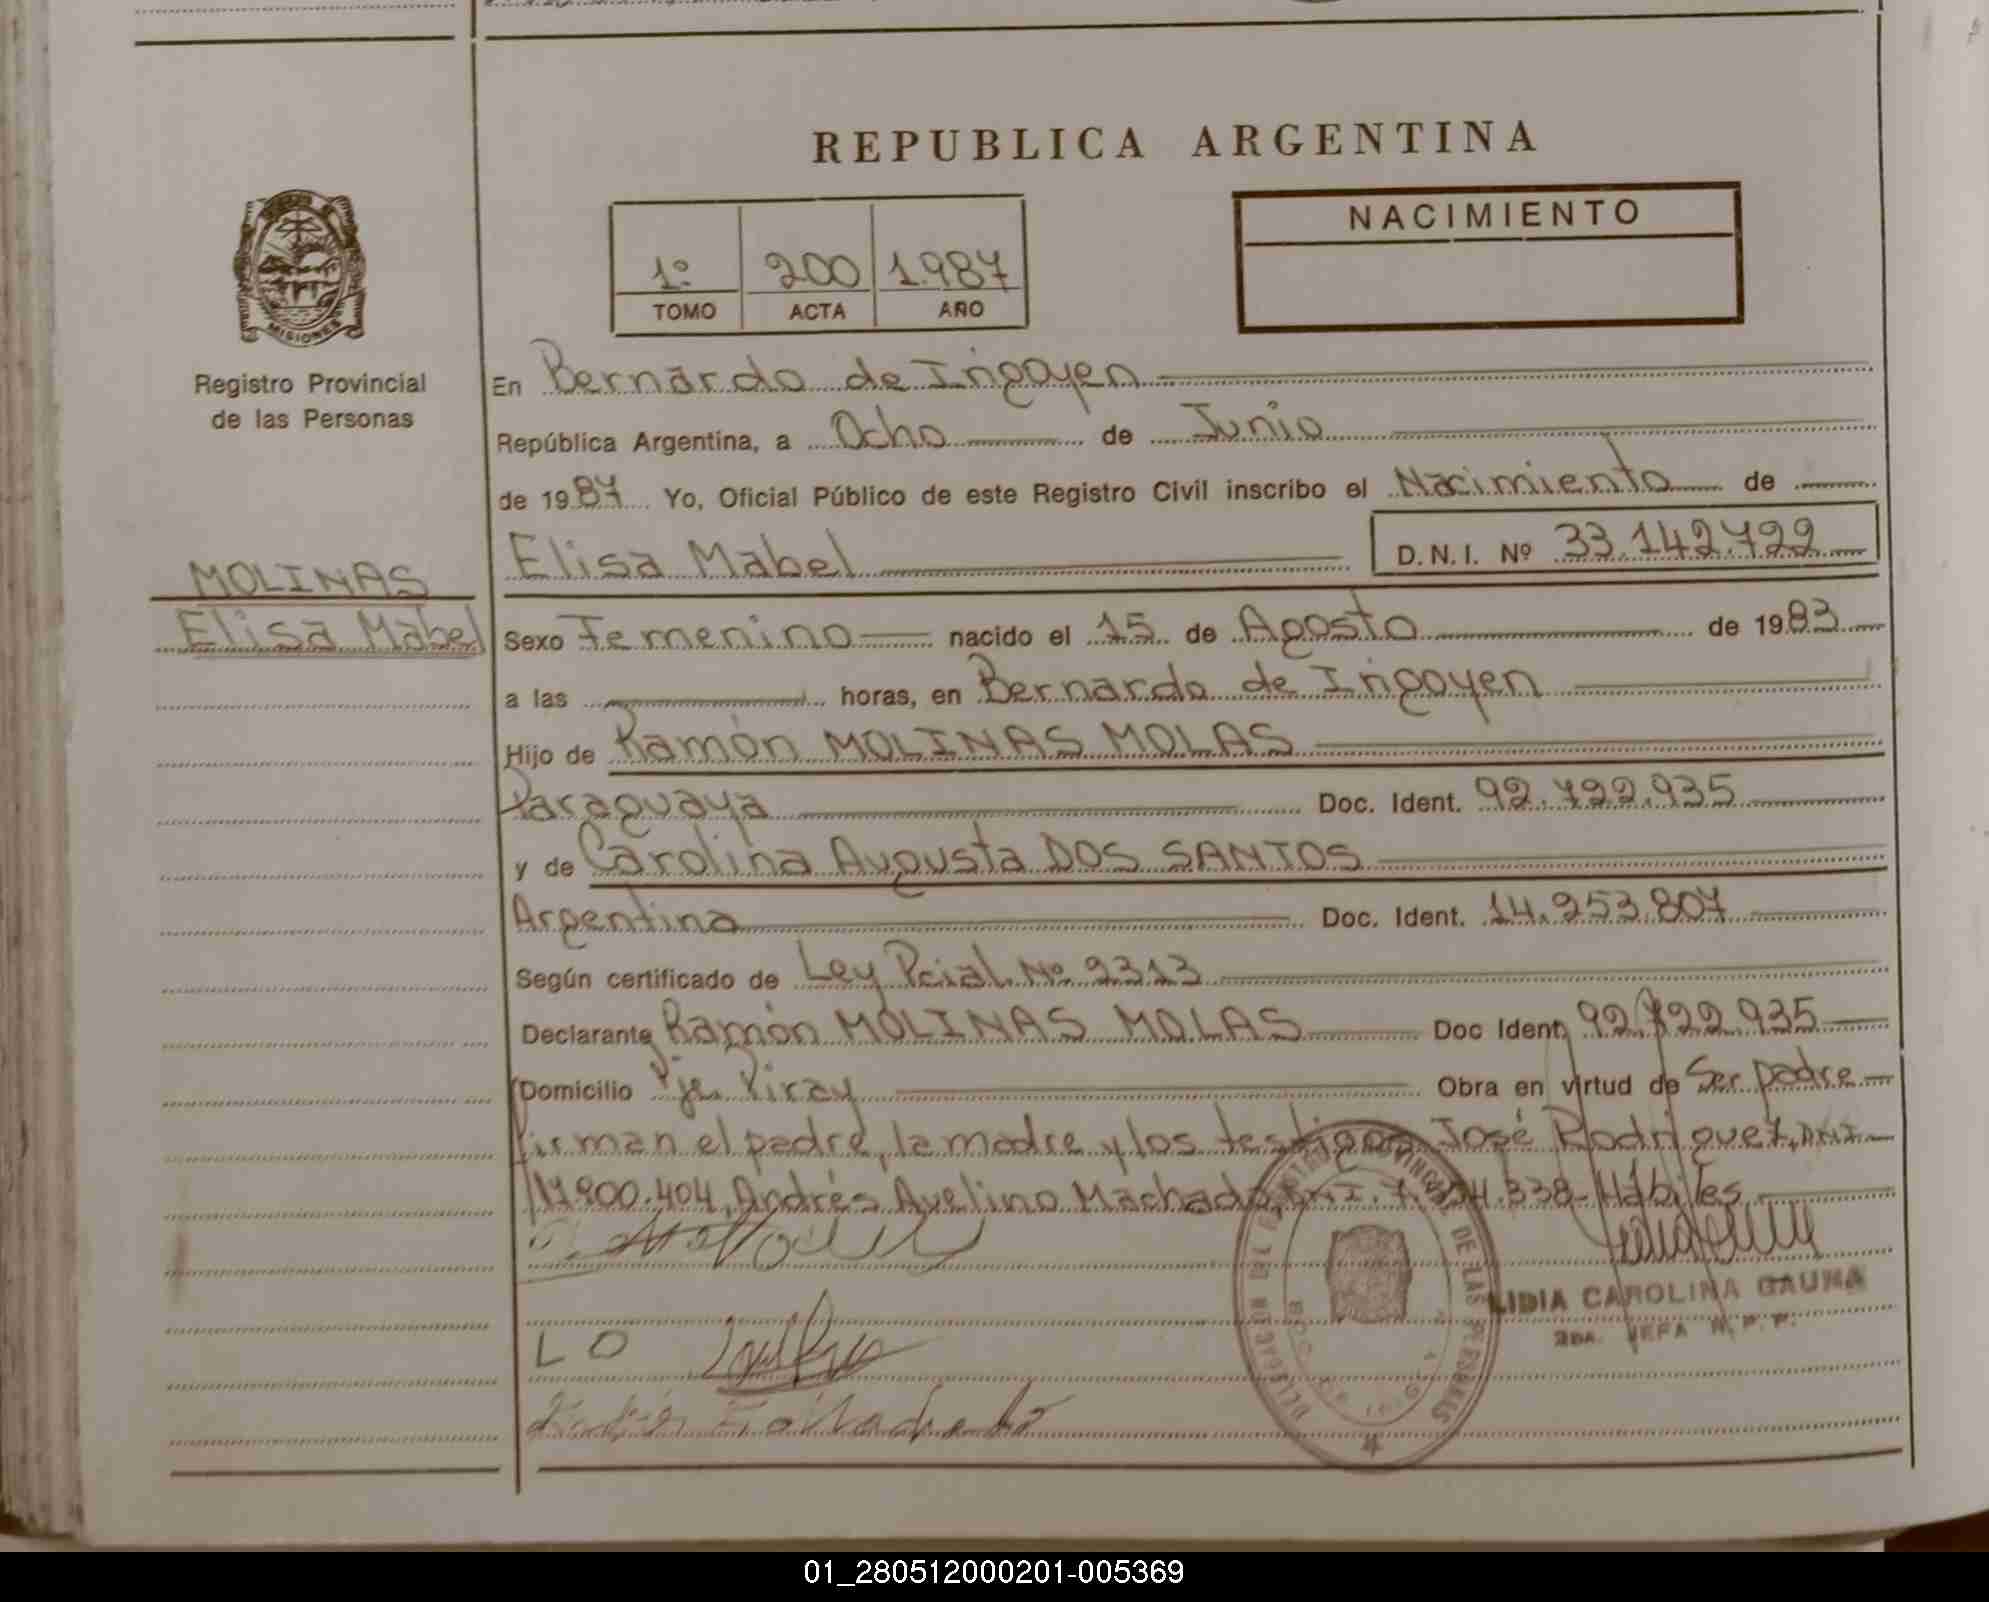 REPUBLICA ARGENTINA
MISIONES
Registro Provincial
de las Personas
1º 200 1.987
TOMO ACTA AÑO
NACIMIENTO
En Bernardo de Irigoyen
República Argentina, a Ocho de Junio
de 1987 Yo, Oficial Público de este Registro Civil inscribo el Nacimiento de
Elisa Mabel D.N.I. Nº 33.142.722
MOLINAS
Elisa Mabel
Sexo Femenino nacido el 15 de Agosto de 1983
a las horas, en Bernardo de Irigoyen
Hijo de Ramón MOLINAS MOLAS
Paraguaya Doc. Ident. 92.722.935
y de Carolina Augusta DOS SANTOS
Argentina Doc. Ident. 14.253.807
Según certificado de Ley Pcial. Nº 2313
Declarante Ramón MOLINAS MOLAS Doc Ident 92.722.935
Domicilio Pje. Piray Obra en virtud de Ser padre
firman el padre, la madre y los testigos José Rodriguez, DNI
17.800.404, Andrés Avelino Machado, DNI. 338 Hábiles
LIDIA CAROLINA GAUNA
2DA. JEFA R.P.P.
L O
DELEGACION DEL REGISTRO PROVINCIAL DE LAS PERSONAS
01_280512000201-005369